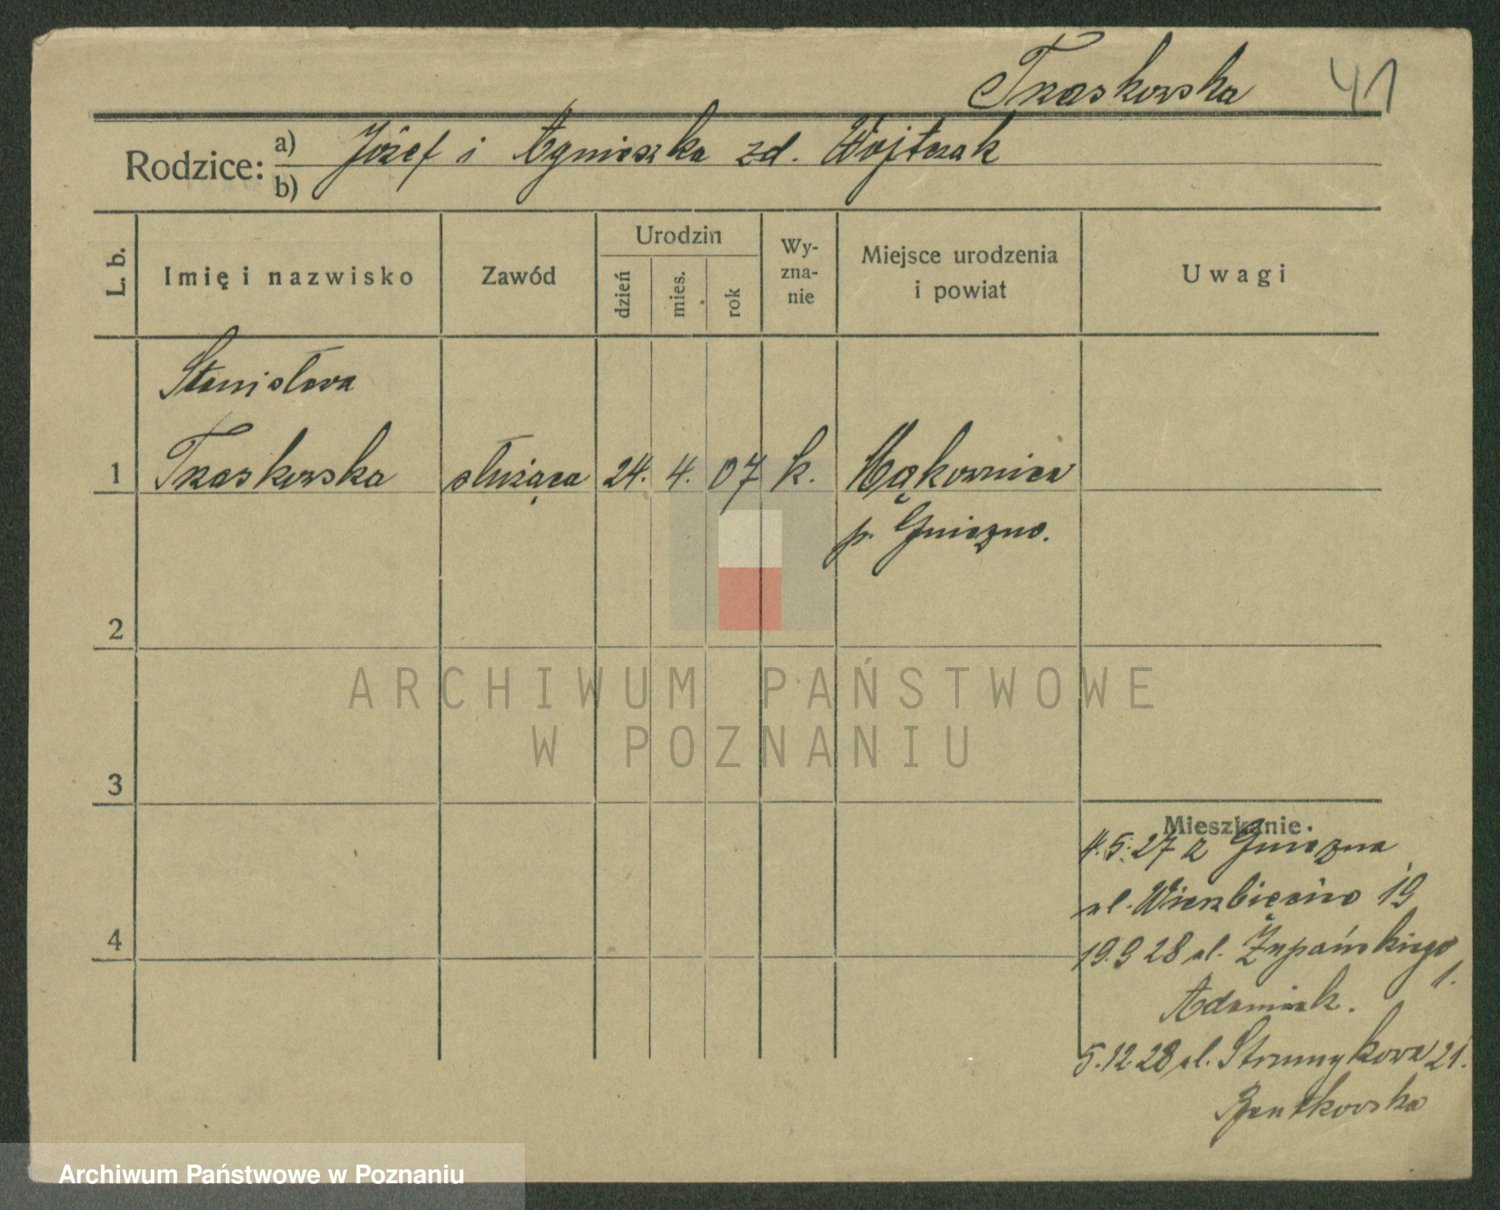 Trzaskowska 41
Rodzice: a) Józef i Agnieszka zd. Wojtczak
b)
L. b. Imię i nazwisko Zawód Urodzin dzień mies. rok Wy-zna-nie Miejsce urodzenia i powiat Uwagi
Stanisława
1 Trzaskowska służąca 24. 4. 07 k. Mąkownica
p. Gniezno.
2
ARCHIWUM PAŃSTWOWE
W POZNANIU
3
Mieszkanie.
4.5.27 z Gniezna
ul. Wierzbięcice 19
4
19.9 28 ul. Żupańskiego 1.
Adamiak.
5.12.28 ul. Strumykowa 21.
Bentkowska
Archiwum Państwowe w Poznaniu